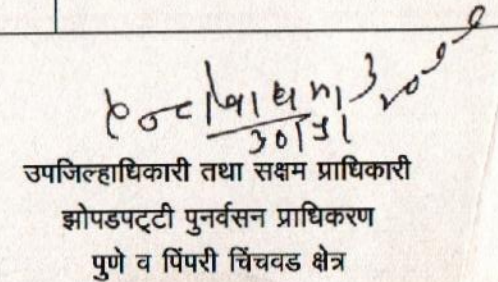 उपजिल्हाधिकारी तथा सक्षम प्राधिकारी
झोपडपट्टी पुनर्वसन प्राधिकरण
पुणे व पिंपरी चिंचवड क्षेत्र